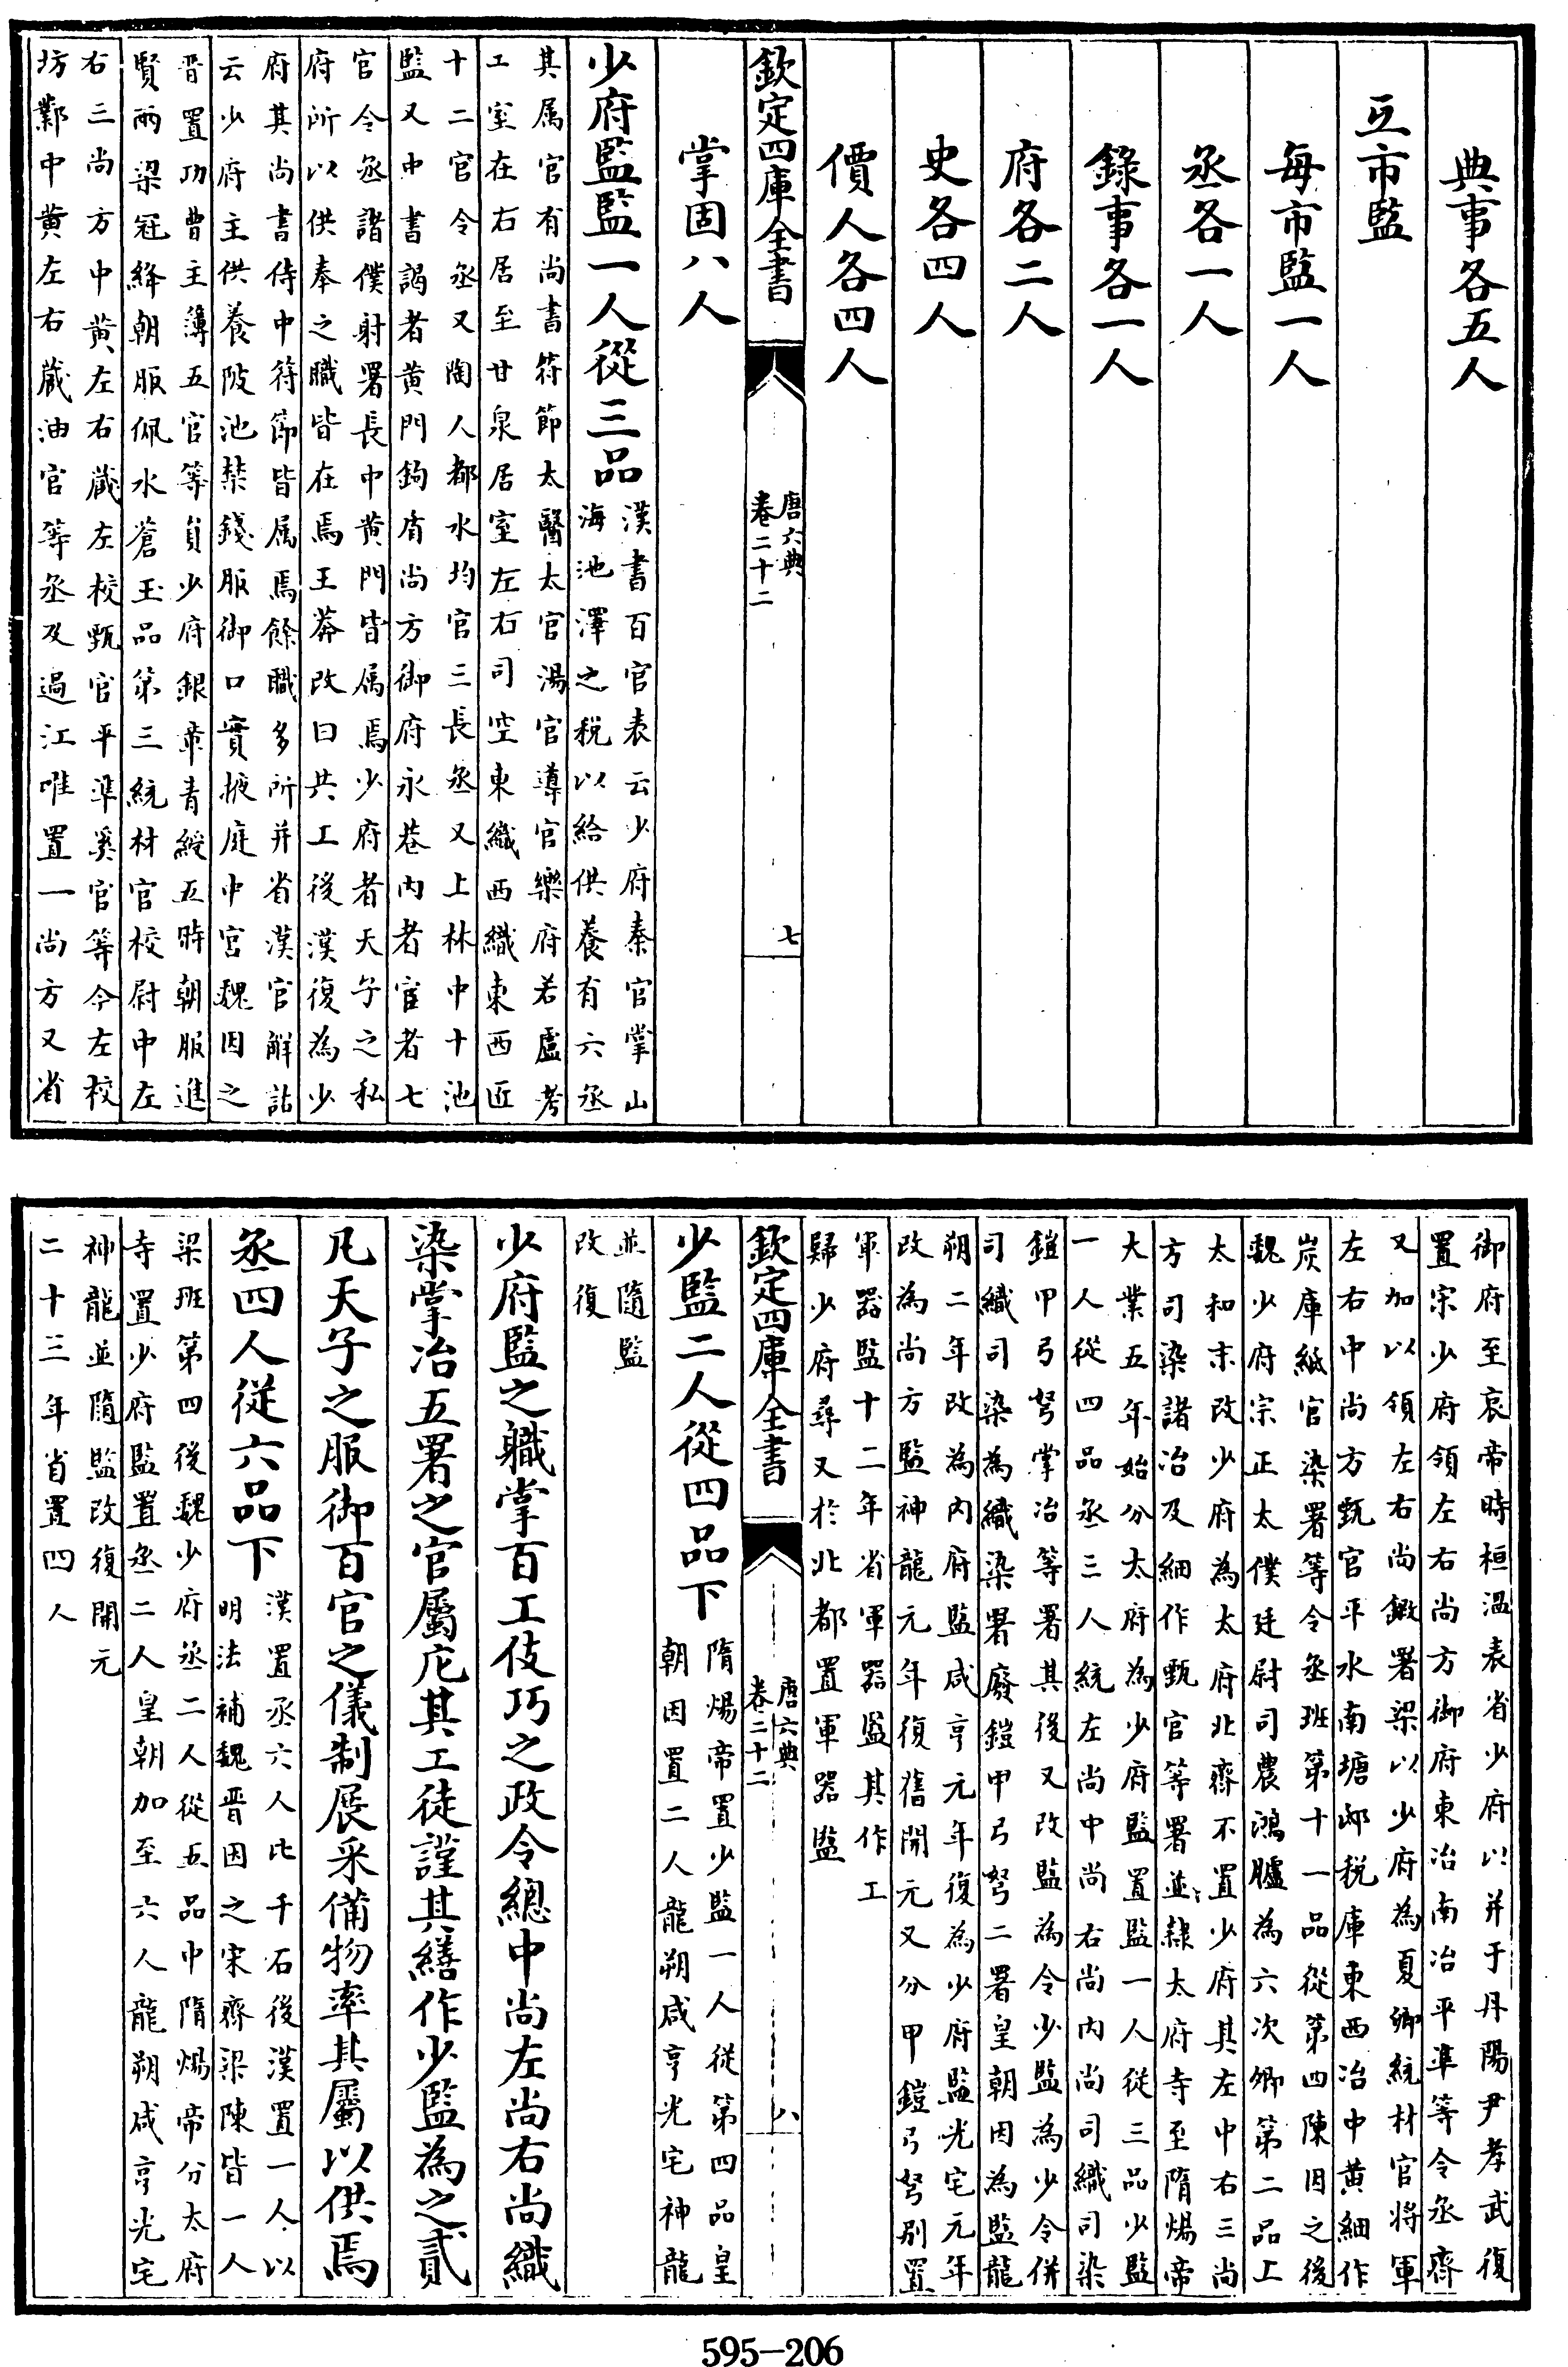 典事各五人
互市監
每市監一人
丞各一人
錄事各一人
府各二人
史各四人
價人各四人
欽定四庫全書
唐六典
卷二十二
七
掌固八人
少府監監一人從三品
漢書百官表云少府秦官掌山
海池澤之税以給供養有六丞
其属官有尚書符節太醫太官湯官導官樂府若盧考
工室在右居至甘泉居室左右司空東織西織東西匠
十二官令丞又陶人都水均官三長丞又上林中十池
監又中書謁者黄門鉤盾尚方御府永巷内者宦者七
官令丞諸僕射署長中黄門皆属焉少府者天子之私
府所以供奉之職皆在焉王莽改曰共工後漢復為少
府其尚書侍中符節皆属焉餘職多所并省漢官解詁
云少府主供養陂池禁錢服御口實掖庭中宫魏因之
晋置功曹主薄五官等員少府銀章青綬五時朝服進
賢兩梁冠絳朝服佩水蒼玉品第三統材官校尉中左
右三尚方中黄左右藏左校甄官平準奚官等令左校
坊鄴中黄左右藏油官等丞及過江唯置一尚方又省
御府至哀帝時桓温表省少府以并于丹陽尹孝武復
置宋少府領左右尚方御府東冶南冶平準等令丞齊
又加以領左右尚鍛署梁以少府為夏卿統材官將軍
左右中尚方甄官平水南塘邸税庫東西冶中黄細作
炭庫紙官染署等令丞班第十一品從第四陳因之後
魏少府宗正太僕廷尉司農鴻臚為六次卿第二品上
太和末改少府為太府北齊不置少府其左中右三尚
方司染諸冶及細作甄官等署並隸太府寺至隋煬帝
大業五年始分太府為少府監置監一人從三品少監
一人從四品丞三人統左尚中尚右尚内尚司織司染
鎧甲弓弩掌冶等署其後又改監為令少監為少令併
司織司染為織染署廢鎧甲弓弩二署皇朝因為監龍
朔二年改為内府監咸亨元年復為少府監光宅元年
改為尚方監神龍元年復舊開元又分甲鎧弓弩别置
軍器監十二年省軍器監其作工
歸少府尋又於北都置軍器監
欽定四庫全書
唐六典
卷二十二
八
少監二人從四品下
隋煬帝置少監一人從第四品皇
朝因置二人龍朔咸亨光宅神龍
並隨監
改復
少府監之職掌百工伎巧之政令總中尚左尚右尚織
染掌冶五署之官屬庀其工徒謹其繕作少監為之貳
凡天子之服御百官之儀制展采備物率其屬以供焉
丞四人從六品下
漢置丞六人比千石後漢置一人以
明法補魏晋因之宋齊梁陳皆一人
梁班第四後魏少府丞二人從五品中隋煬帝分太府
寺置少府監置丞二人皇朝加至六人龍朔咸亨光宅
神龍並隨監改復開元
二十三年省置四人
595-206